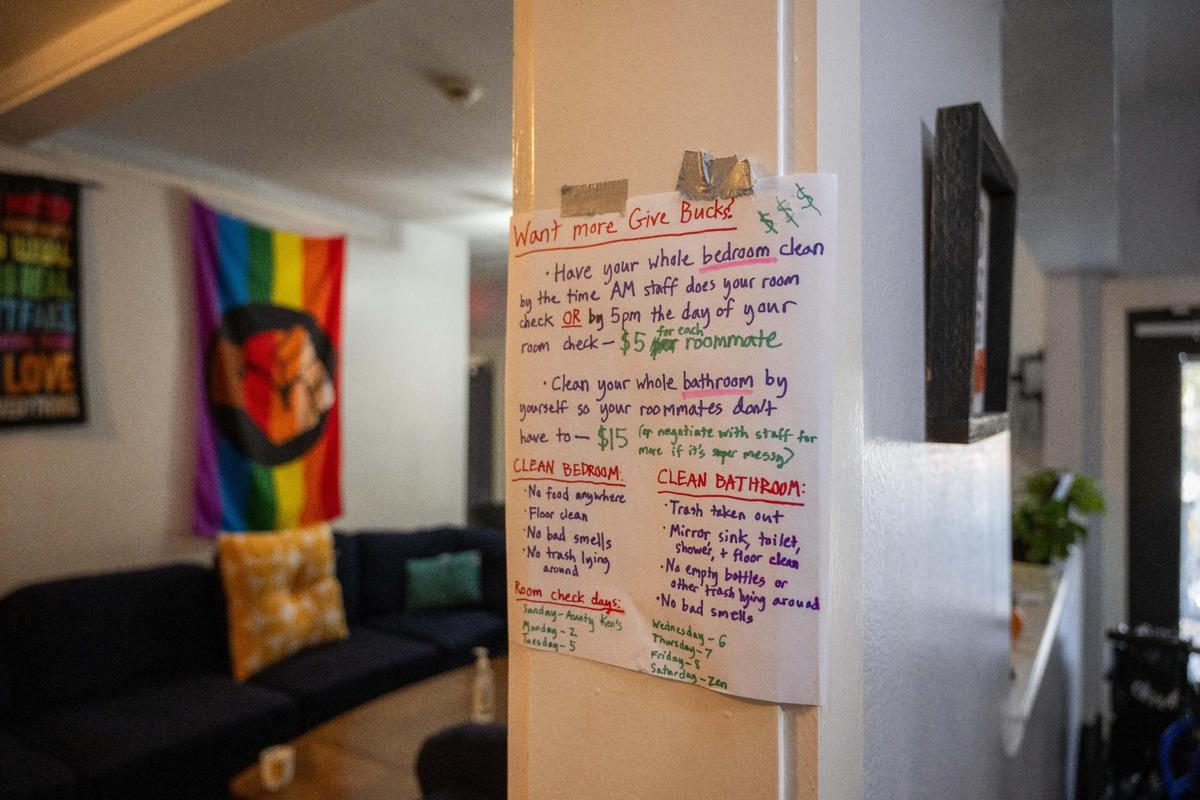 LOVE
Want more Give Bucks?
$ $ $
· Have your whole bedroom clean
by the time AM staff does your room
check OR by 5pm the day of your
room check – $5 for each roommate
· Clean your whole bathroom by
yourself so your roommates don't
have to – $15 (or negotiate with staff for
more if it's super messy)
CLEAN BEDROOM:
· No food anywhere
· Floor clean
· No bad smells
· No trash lying
around
Room check days:
Sunday – Aunty Ken's
Monday – 2
Tuesday – 5
CLEAN BATHROOM:
· Trash taken out
· Mirror, sink, toilet,
shower, + floor clean
· No empty bottles or
other trash lying around
· No bad smells
Wednesday – 6
Thursday – 7
Friday – 8
Saturday – Zen